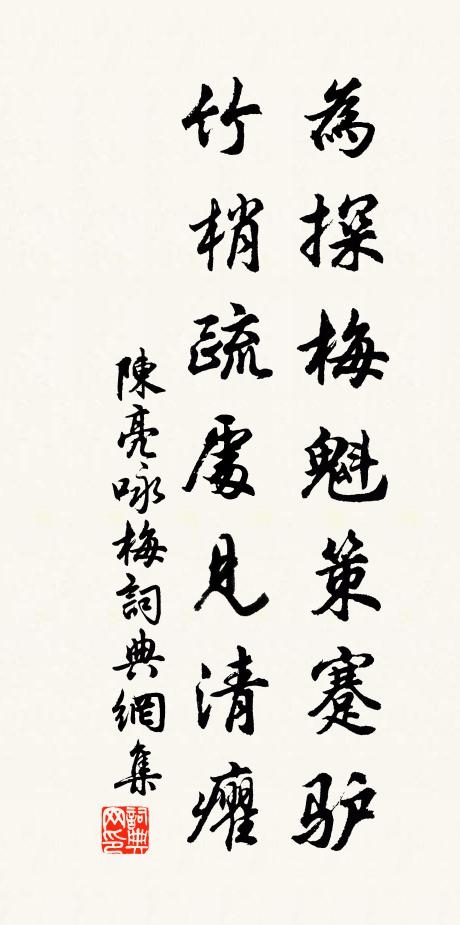 為探梅魁策蹇驴
竹梢疏處見清癯
陳亮咏梅詞典網集
詞典網印